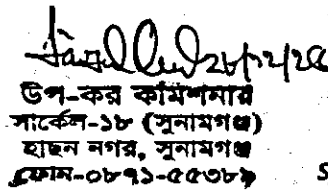 উপ-কর কমিশনার
সার্কেল-১৮ (সুনামগঞ্জ)
হাছন নগর, সুনামগঞ্জ
ফোন-০৮৭১-৫৫৩৮৯
S